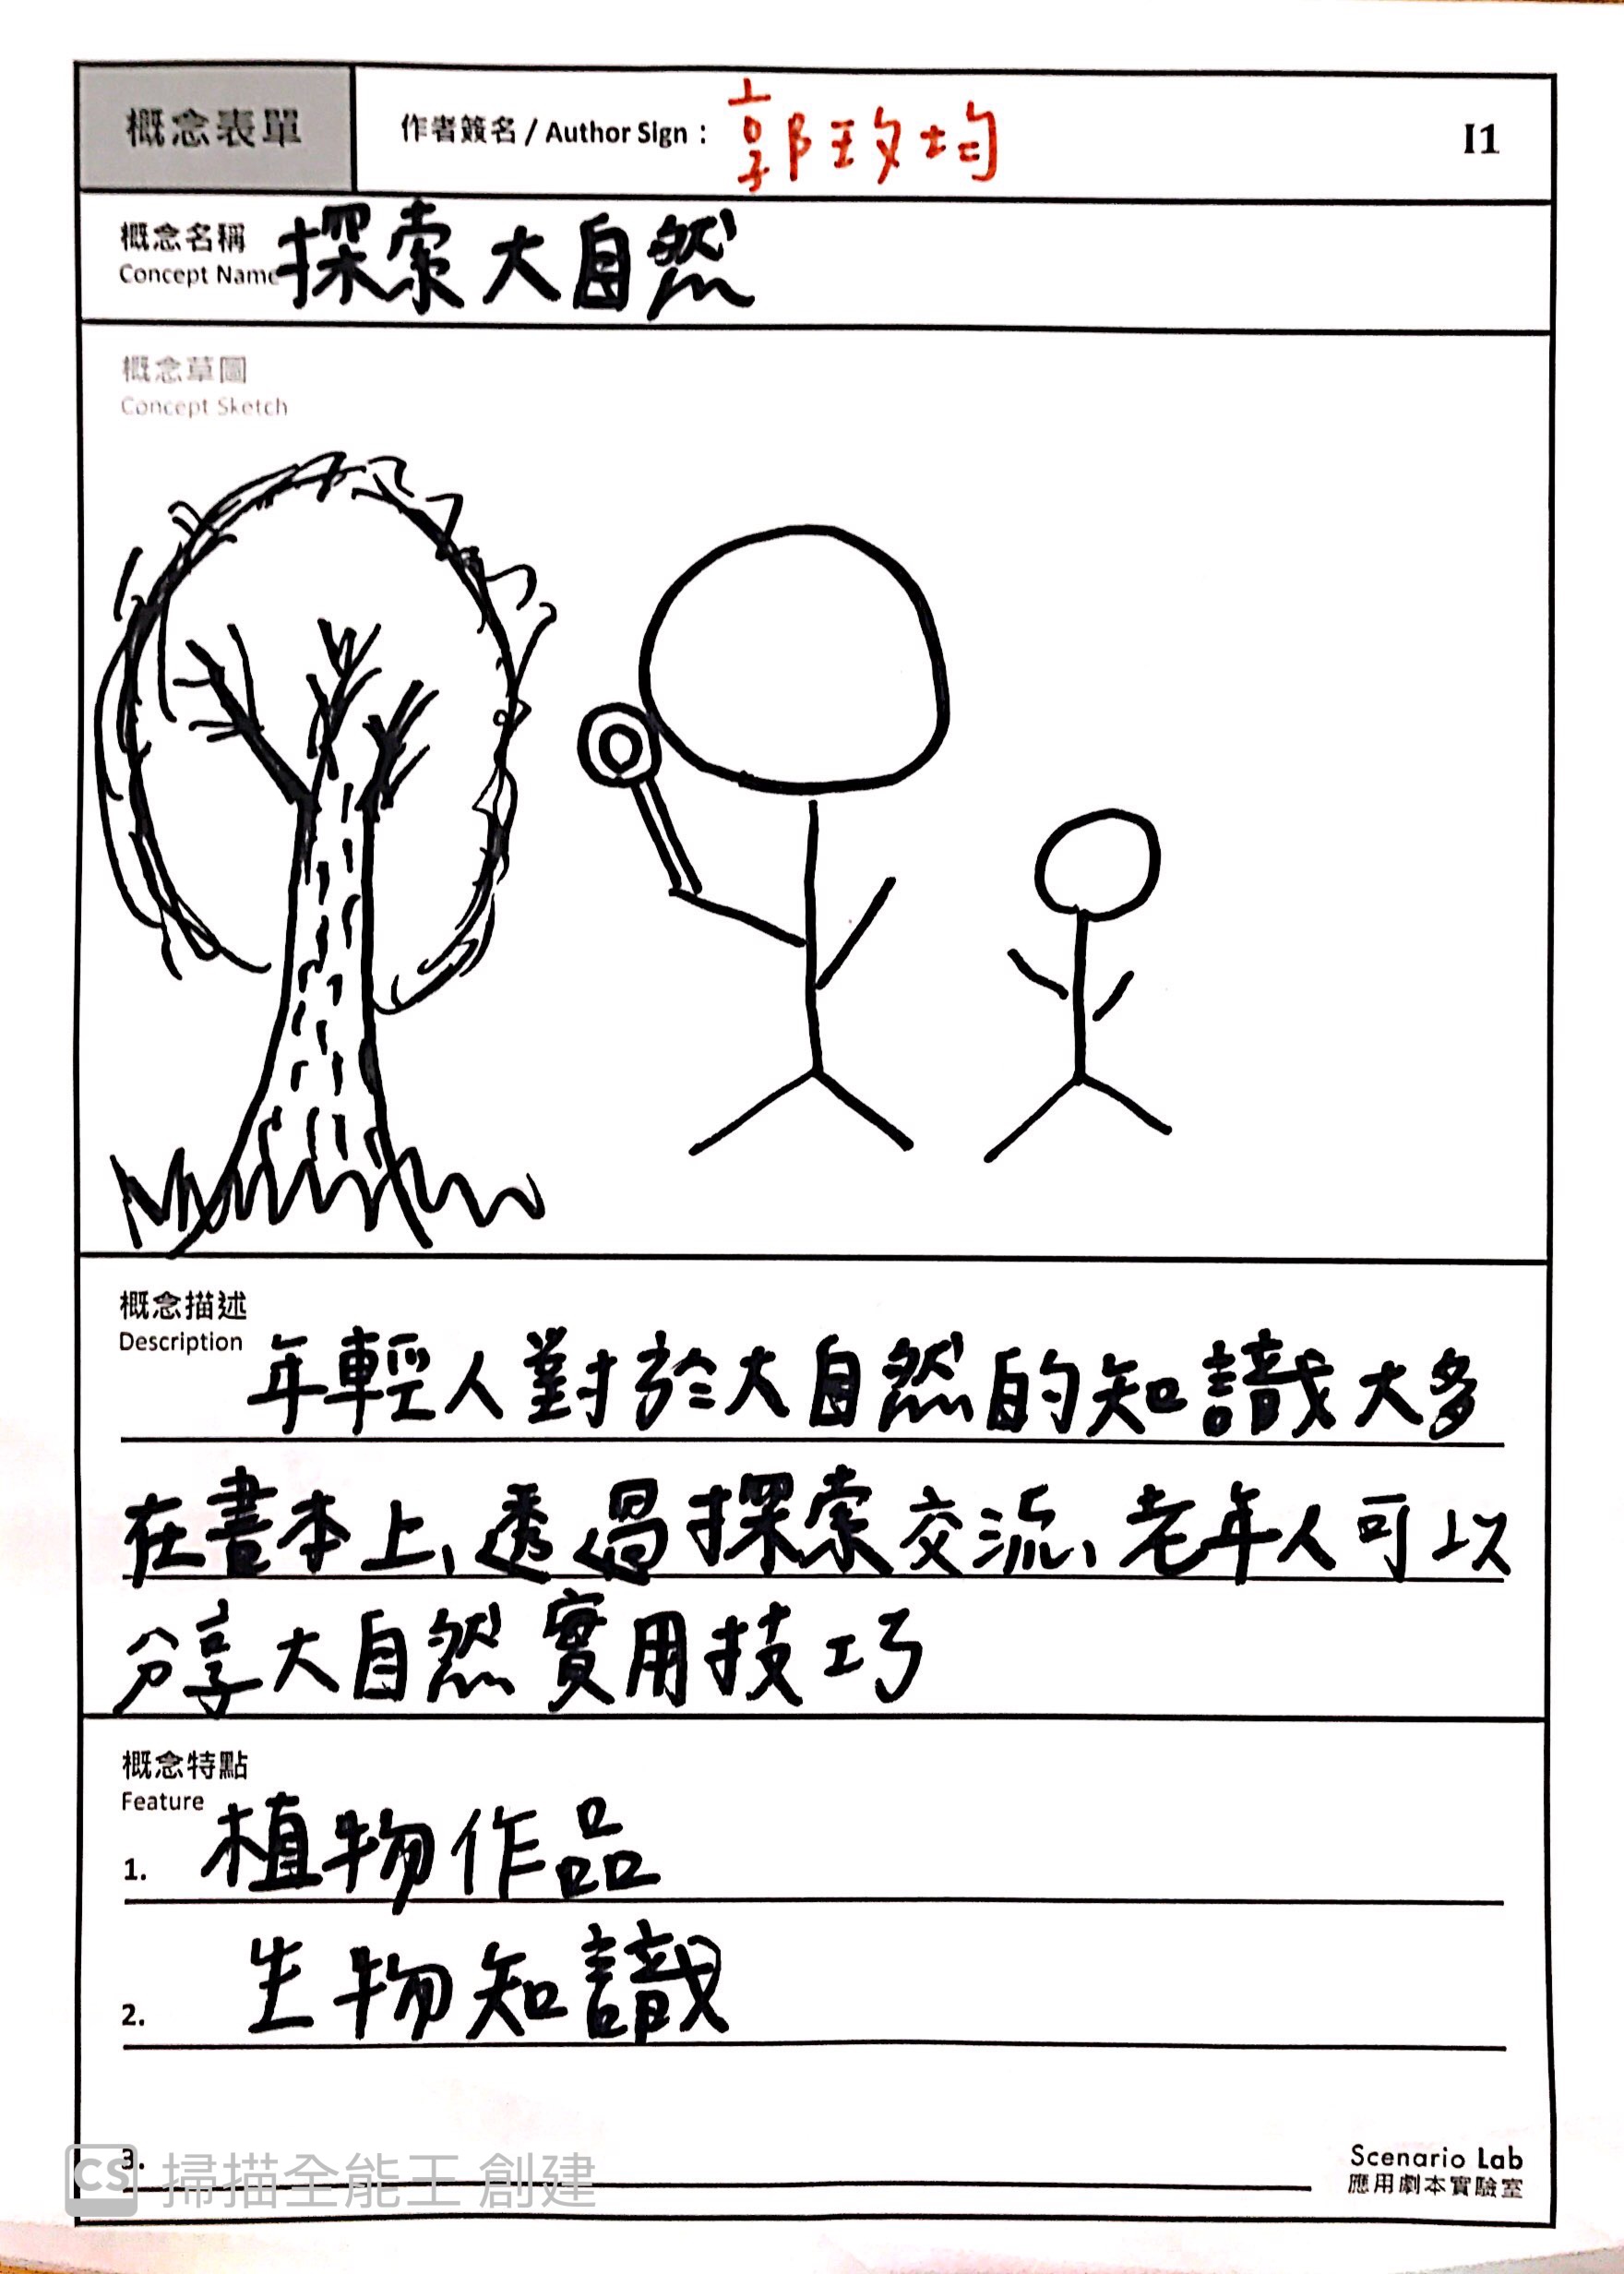 概念表單
作者簽名 / Author Sign： 郭玫均
I1
概念名稱
Concept Name
探索大自然
概念草圖
Concept Sketch
概念描述
Description
年輕人對於大自然的知識大多
在書本上、透過探索交流、老年人可以
分享大自然實用技巧
概念特點
Feature
1. 植物作品
2. 生物知識
3.
CS 掃描全能王 創建
Scenario Lab
應用劇本實驗室